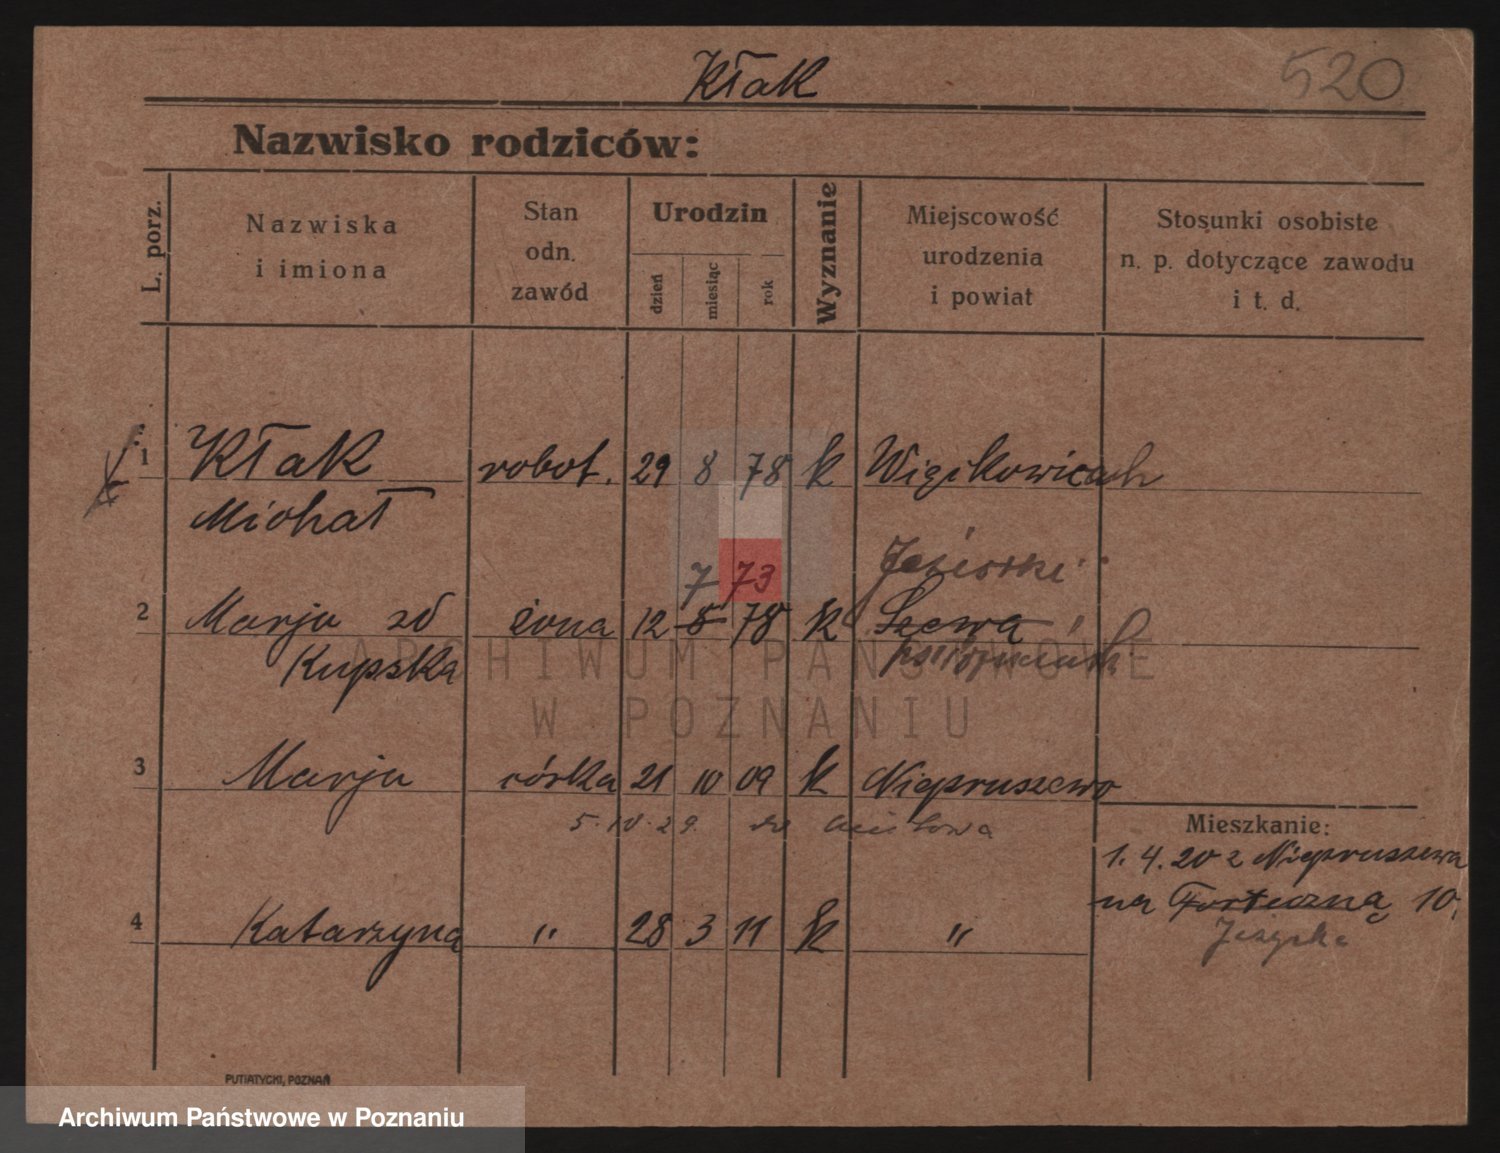 Kłak
520
Nazwisko rodziców:
L. porz.
Nazwiska
i imiona
Stan
odn.
zawód
Urodzin
dzień
miesiąc
rok
Wyznanie
Miejscowość
urodzenia
i powiat
Stosunki osobiste
n. p. dotyczące zawodu
i t. d.
1 Kłak robot. 29 8 78 k Więckowicach
Michał
7 73
2 Marja zd żona 12 8 78 k Szewa
Kupska
3 Marja córka 21 10 09 k Niepruszewo
5.10.29. do
Mieszkanie:
1.4.20 z Niepruszewa
na Forteczną 10.
4 Katarzyna " 28 3 11 k "
ARCHIWUM PAŃSTWOWE
W POZNANIU
PUTIATYCKI, POZNAŃ
Archiwum Państwowe w Poznaniu